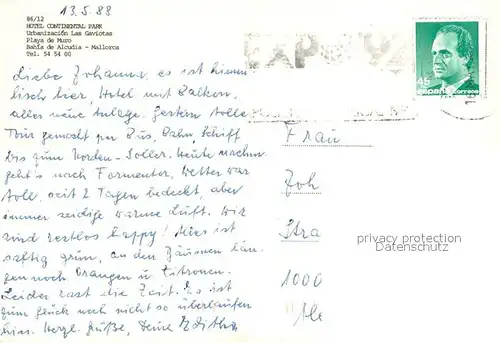 13.5.88
86/12
HOTEL CONTINENTAL PARK
Urbanización Las Gaviotas
Playa de Muro
Bahía de Alcudia - Mallorca
Tel. 54 54 00
Liebe Johanna, es ist himm
lisch hier, Hotel mit Balkon,
alles neue Anlage. Gestern tolle
Tour gemacht per Bus, Bahn, Schiff
bis zum Norden - Soller. Heute nachm.
geht's nach Formentor. Wetter war
toll, seit 2 Tagen bedeckt, aber
immer seidige warme Luft. Wir
sind restlos happy! Alles ist
saftig grün, an den Bäumen hän-
gen noch Orangen u. Zitronen.
Leider rast die Zeit. Es ist
zum Glück noch nicht so überlaufen
hier. Herzl. Grüße, Deine Editha
EXPO 92
45
ESPAÑA
correos
Frau
Joh
Stra
1000
privacy protection